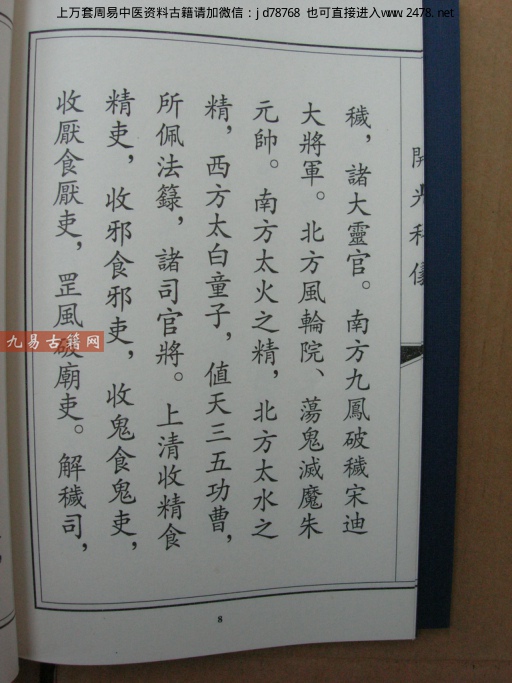 上万套周易中医资料古籍请加微信：jd78768 也可直接进入www.2478.net
開光科儀
穢，諸大靈官。南方九鳳破穢宋迪
大將軍。北方風輪院、蕩鬼滅魔朱
元帥。南方太火之精，北方太水之
精，西方太白童子，值天三五功曹，
所佩法籙，諸司官將。上清收精食
精吏，收邪食邪吏，收鬼食鬼吏，
收厭食厭吏，罡風破廟吏。解穢司，
九易古籍网
8